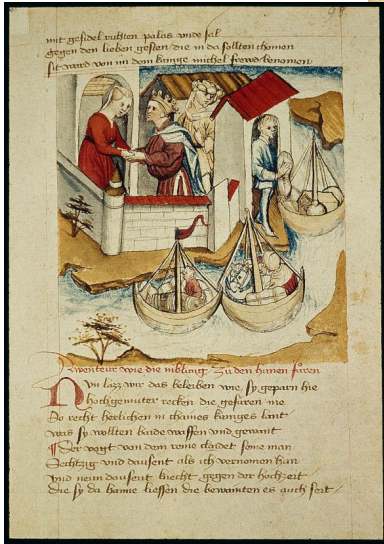 mit gesidel richten palas unde sal
gegen den lieben gesten die in da sollten chomen
sit ward von im dem kunige michel frewd benomen
Awenteur wie die niblung zu den hunen furen
Nun lazz wir das beleiben wie sy geparn hie
hochgemuter recken die gefuren nie
so recht herlichen in chaines kuniges lant
was sy wollten hande waffen und gewant
Der vogt von dem reine claidet seine man
Sechtzig und dausent als ich vernomen han
Und neun dausent knecht gegen der hochzeit
die sy da haime liessen die bewainten es auch seit